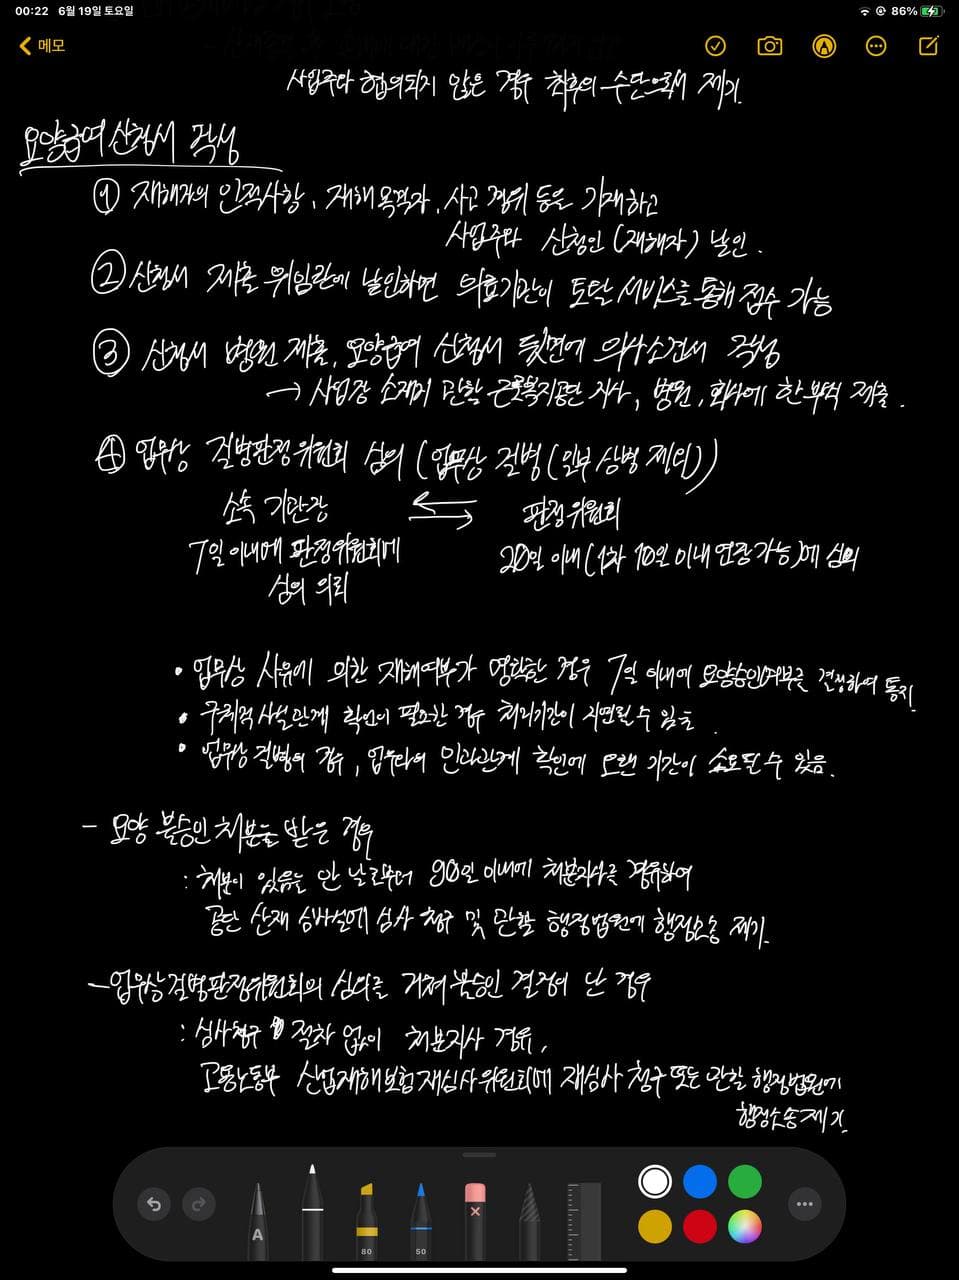 00:22 6월 19일 토요일
86%
메모
사업주와 협의되지 않은 경우 최후의 수단으로서 제기.
요양급여 신청서 작성
① 재해자의 인적사항, 재해 목격자, 사고 경위 등을 기재하고
사업주와 신청인 (재해자) 날인.
② 신청서 제출 위임란에 날인하면 의료기관이 토탈 서비스를 통해 접수 가능
③ 신청서 병원 제출, 요양급여 신청서 뒷면에 의사소견서 작성
→ 사업장 소재지 관할 근로복지공단 지사, 병원, 회사에 한부씩 제출.
④ 업무상 질병판정위원회 심의 (업무상 질병 (일부 상병 제외))
소속 기관장
판정위원회
7일 이내에 판정위원회에
심의 의뢰
20일 이내 (1차 10일 이내 연장 가능)에 심의
• 업무상 사유에 의한 재해여부가 명확한 경우 7일 이내에 요양승인여부를 결정하여 통지.
• 구체적 사실관계 확인이 필요한 경우 처리기간이 지연될 수 있음.
• 업무상 질병의 경우, 업무와의 인과관계 확인에 오랜 기간이 소요될 수 있음.
- 요양 불승인 처분을 받은 경우
: 처분이 있음을 안 날로부터 90일 이내에 처분지사를 경유하여
공단 산재 심사실에 심사 청구 및 관할 행정법원에 행정소송 제기.
- 업무상질병판정위원회의 심의를 거쳐 불승인 결정이 난 경우
: 심사청구 절차 없이 처분지사 경유,
고용노동부 산업재해보험재심사위원회에 재심사 청구 또는 관할 행정법원에
행정소송 제기.
A
80
50